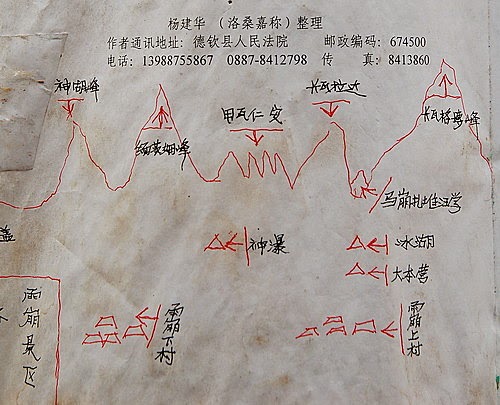 杨建华 （洛桑嘉称）整理
作者通讯地址：德钦县人民法院 邮政编码：674500
电话：13988755867 0887-8412798 传 真：8413860
神湖峰
缅茨姆峰
甲瓦仁安
卡瓦拉达
卡瓦格博峰
马崩扎堆
神瀑
冰湖
大本营
雨崩下村
雨崩上村
雨崩景区